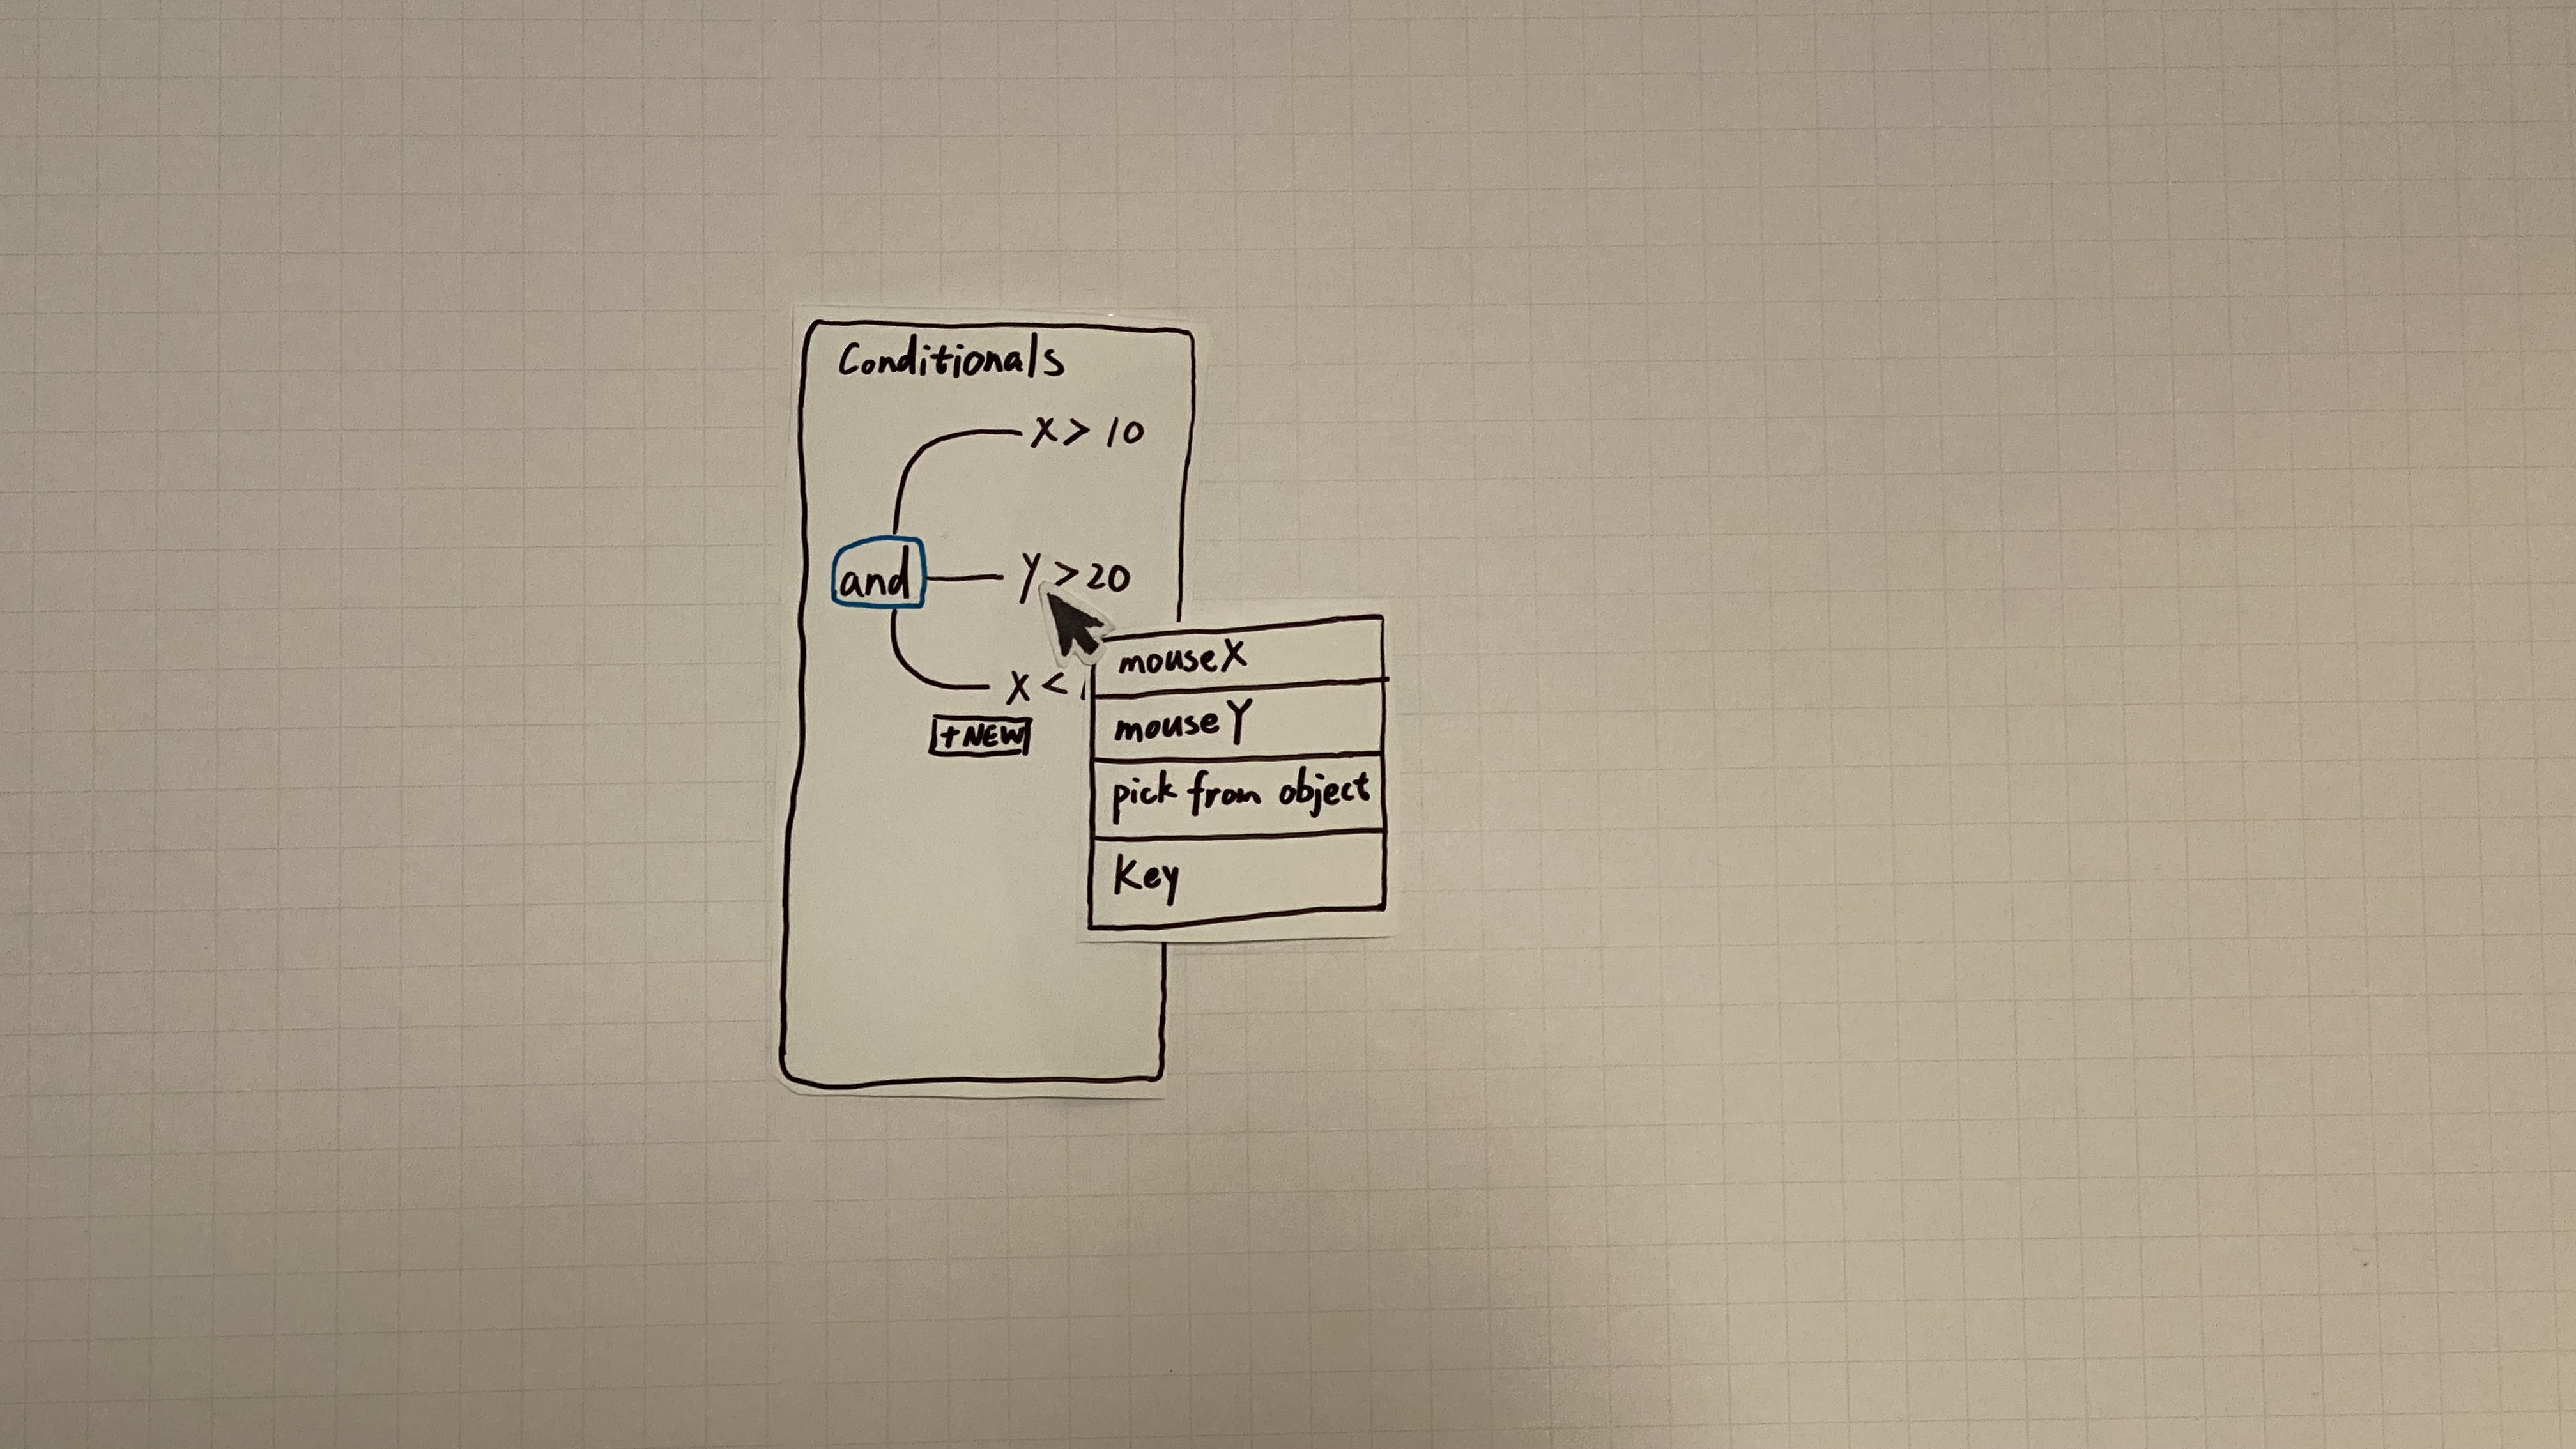 Conditionals
X > 10
and
Y > 20
X <
+NEW
mouseX
mouseY
pick from object
Key